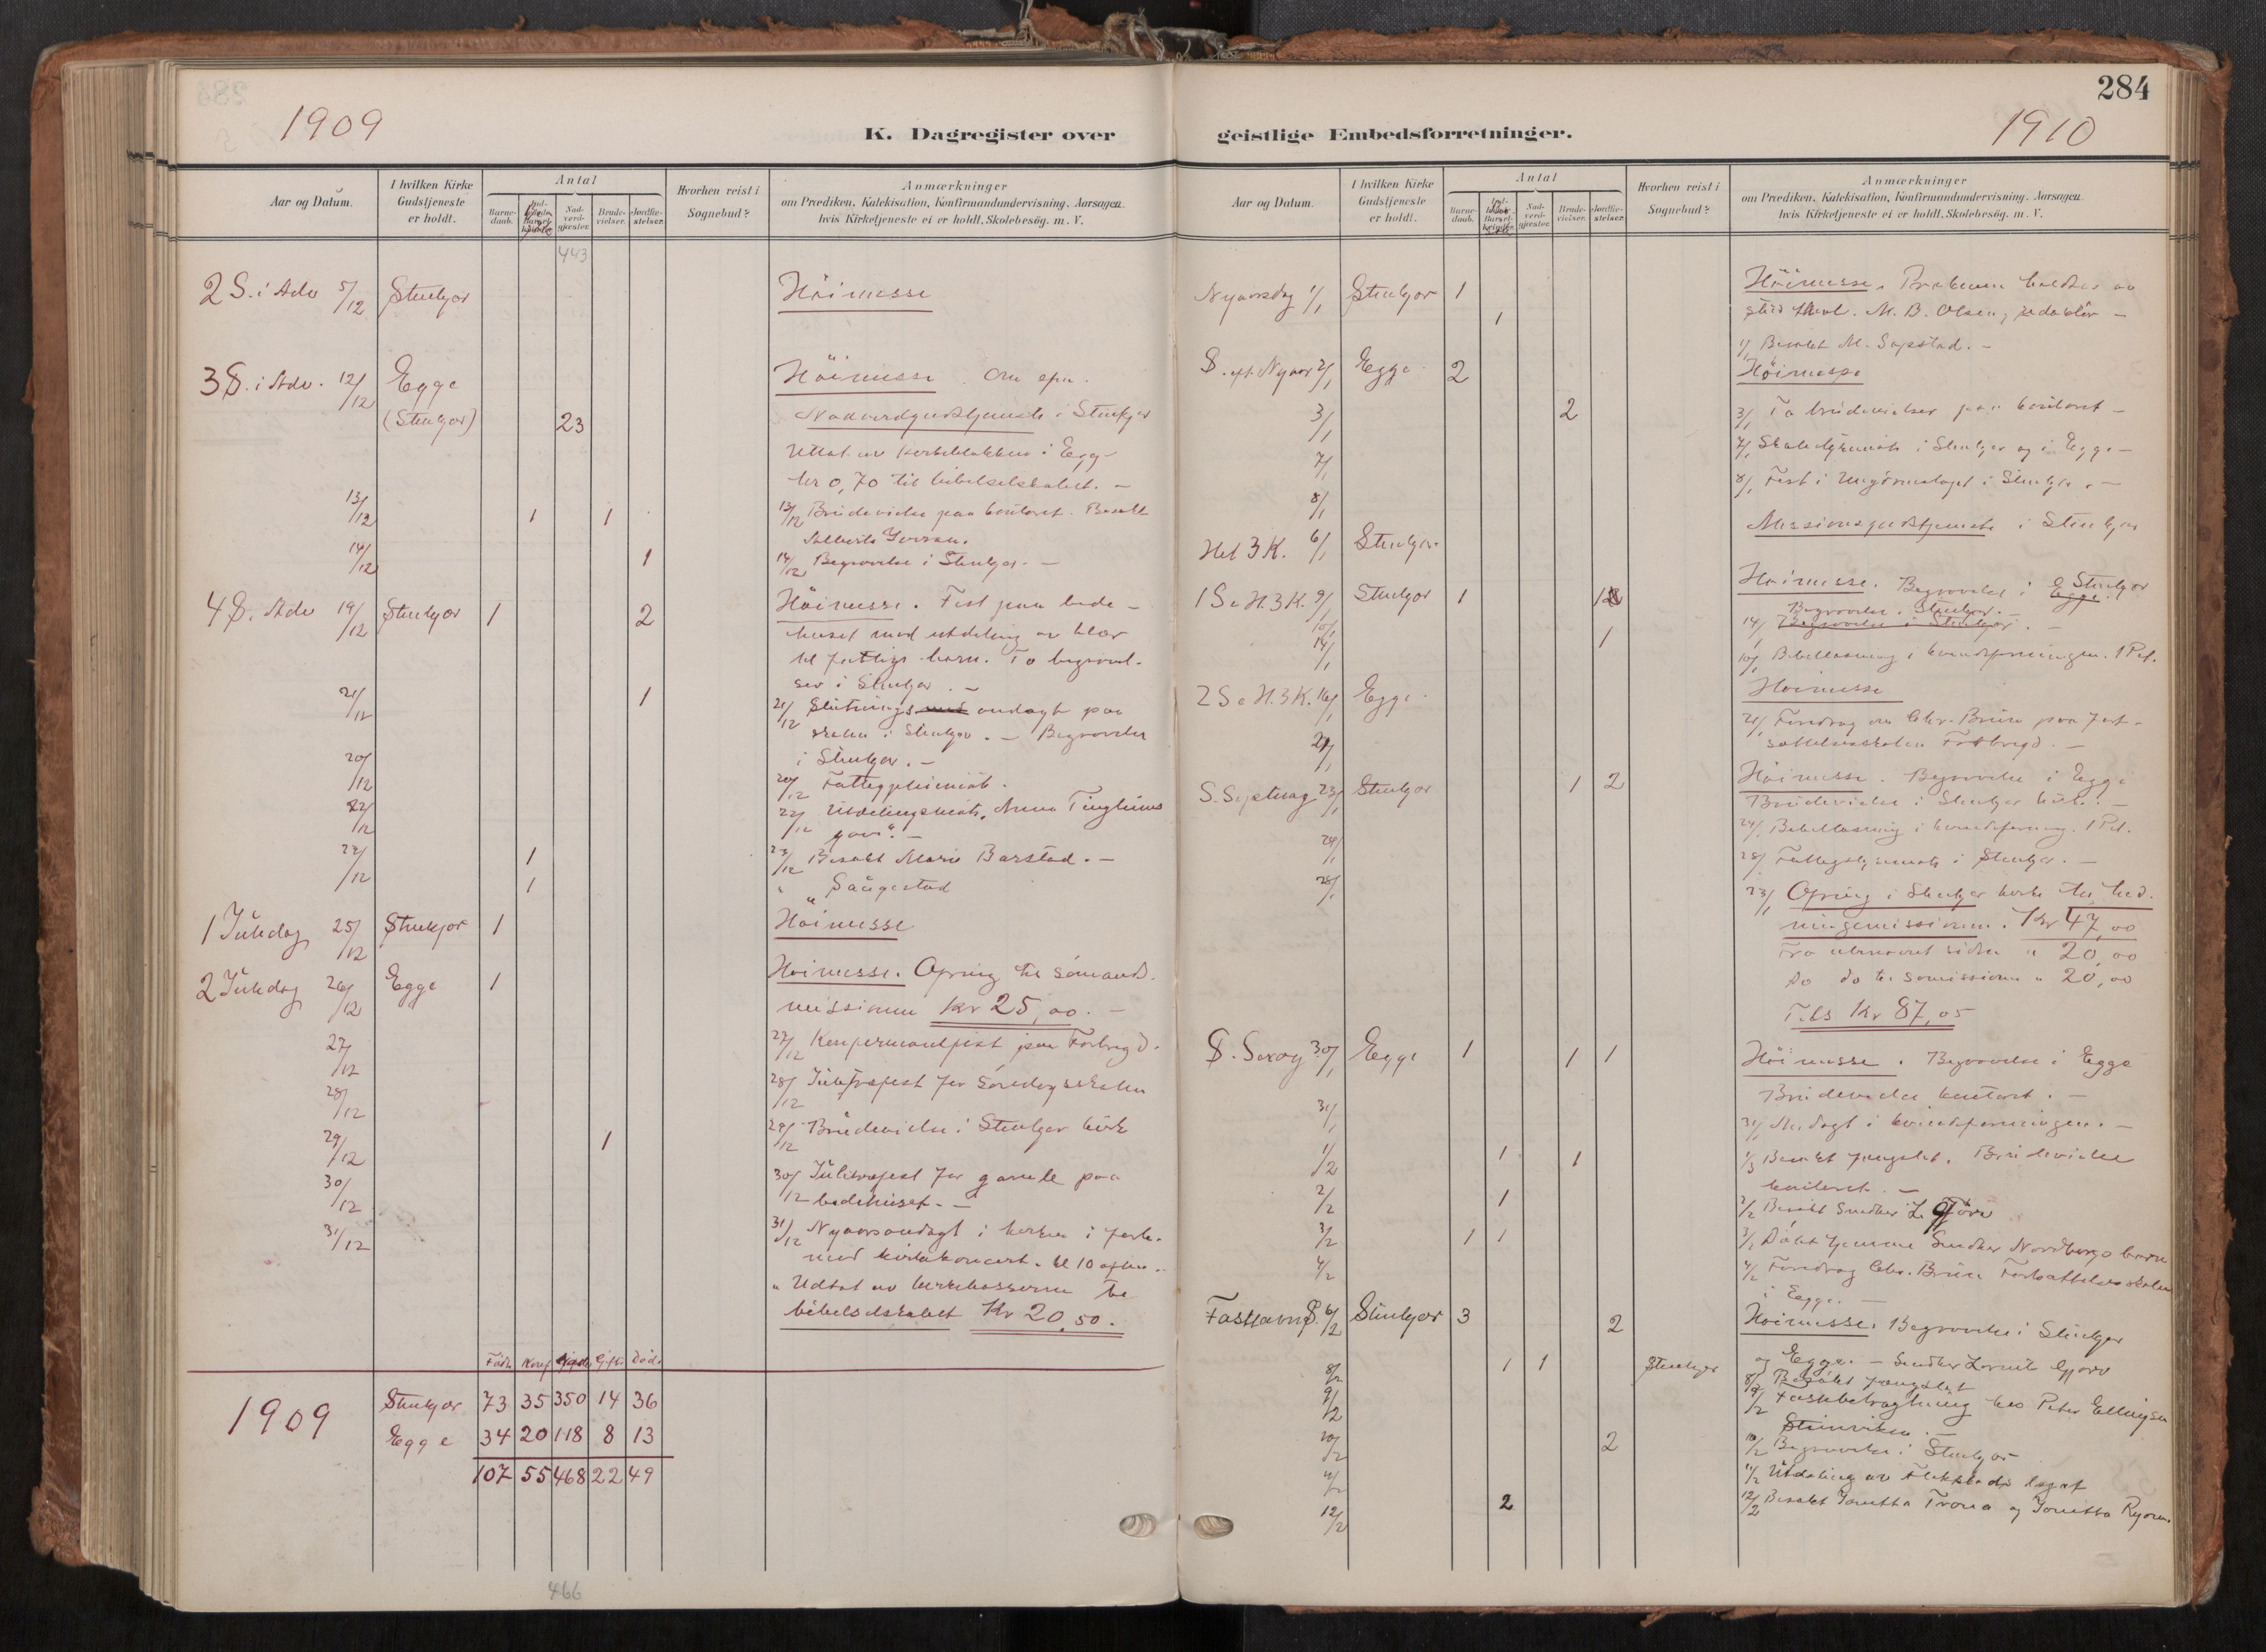 1909
K. Dagregister over
Aar og Datum.
I hvilken Kirke Gudstjeneste er holdt.
Antal
Barne-daab.
Nad-verd-gjæster.
Brude-vielser.
Jordfæ-stelser.
Hvorhen reist i Sognebud?
Anmærkninger
om Prædiken, Katekisation, Konfirmandundervisning. Aarsagen.
hvis Kirketjeneste ei er holdt, Skolebesøg. m. V.
443
2 S. i Adv 5/12 Stenkjær Höimesse
3 S. i Adv. 12/12 Egge Höimesse
(Stenkjær) 23 Nadverdgudstjeneste i Stenkjær
Uttat av kirkeblokken i Egge
kr 0,70 til bibelselskabet. –
13/12 1 1 13/12 Brudevielse paa kontoret. Besøkt
14/12 1 14/12 Begravelse i Stenkjær. –
4 S. Adv 19/12 Stenkjær 1 2 Höimesse. Fest paa bede-
huset med utdeling av klær
til fattige barn. To begravel-
ser i Stenkjær. –
21/12 1 21/12 Slutnings andagt paa
skolen i Stenkjær. – Begravelse
i Stenkjær. –
20/12 20/12
22/12 22/12 Utdelingsmöte
22/12 1 22/12 Besøkt Marie Barstad. –
1 " Saugestad
1 Juledag 25/12 Stenkjær 1 Höimesse
2 Juledag 26/12 Egge 1 Höimesse. Ofring til sömands-
missionen kr 25,00. –
27/12 27/12 Konfirmantfest paa Forbregd.
28/12 28/12 Juletræfest for Söndagsskolen
29/12 1 29/12 Brudevielse i Stenkjær kirke
30/12 30/12 Juletræfest for gamle paa
bedehuset. –
31/12 31/12 Nyaarsandagt i kirken i forb.
med kirkekoncert. kl 10 aften.
" Udtat av kirkebøsserne til
bibelselskabet Kr 20,50.
Födte Konf. Gifte Döde
1909 Stenkjær 73 35 350 14 36
Egge 34 20 118 8 13
107 55 468 22 49
466
284
1910
geistlige Embedsforretninger.
Aar og Datum.
I hvilken Kirke Gudstjeneste er holdt.
Antal
Barne-daab.
Nad-verd-gjæster.
Brude-vielser.
Jordfæ-stelser.
Hvorhen reist i Sognebud?
Anmærkninger
om Prædiken, Katekisation, Konfirmandundervisning. Aarsagen
hvis Kirketjeneste ei er holdt, Skolebesøg. m. V.
Nyaarsdag 1/1 Stenkjær 1 Höimesse. Prækenen holdtes av
1 stud theol. M. B. Olsen, redaktör –
1/1 Besøkt M. Sagstad. –
S. eft. Nyaar 2/1 Egge 2 Höimesse
3/1 2 3/1 To brudevielser paa kontoret –
7/1 7/1 i Stenkjær og i Egge –
8/1 8/1 Fest i Ungdomslaget i Stenkjær. –
Hel 3 K. 6/1 Stenkjær Missionsgudstjeneste i Stenkjær
1 S e H. 3 K. 9/1 Stenkjær 1 Höimesse. Begravelse i Stenkjær
10/1 14/1 Begravelse i Stenkjær. –
14/1 1 10/1 Bibellæsning i kvindeforeningen. 1 Pet.
2 S e H. 3 K. 16/1 Egge Höimesse
21/1 21/1 Foredrag om Chr. Bruun paa fort-
sættelsesskolen Forbregd. –
S. Septuag 23/1 Stenkjær 1 2 Höimesse. Begravelse i Egge
Brudevielse i Stenkjær kirke. –
24/1 24/1 Bibellæsning i kvindeforening. 1 Pet.
28/1 28/1 i Stenkjær. –
23/1 Ofring i Stenkjær kirke til hed-
ningemissionen. Kr 47,00
Fra ubenævnt siden " 20,00
do do til sömissionen " 20,00
Tils Kr 87,05
S. Sexag 30/1 Egge 1 1 1 Höimesse. Begravelse i Egge
Brudevielse kontoret. –
31/1 31/1 Andagt i kvindeforeningen. –
1/2 1 1 Besøkt fængslet. Brudevielse
kontoret. –
2/2 1 2/2 Besøkt Snedker
3/2 1 1 3/2 Döbt hjemme Snedker Nordbergs barn
4/2 4/2 Foredrag Chr. Bruun Fortsættelsesskolen
i Egge. –
Fastelavns S. 6/2 Stenkjær 3 2 Höimesse. Begravelse i Stenkjær
og Egge. –
8/2 1 1 Stenkjær 8/2 Besøkt fængslet
9/2 9/2 Fastebetragtning hos Peter Ellingsen
Steinviken. –
10/2 2 10/2 Begravelse i Stenkjær
11/2 11/2 Utdeling av legat
12/2 2 12/2 Besøkt Jonetta Trona og Jonetta